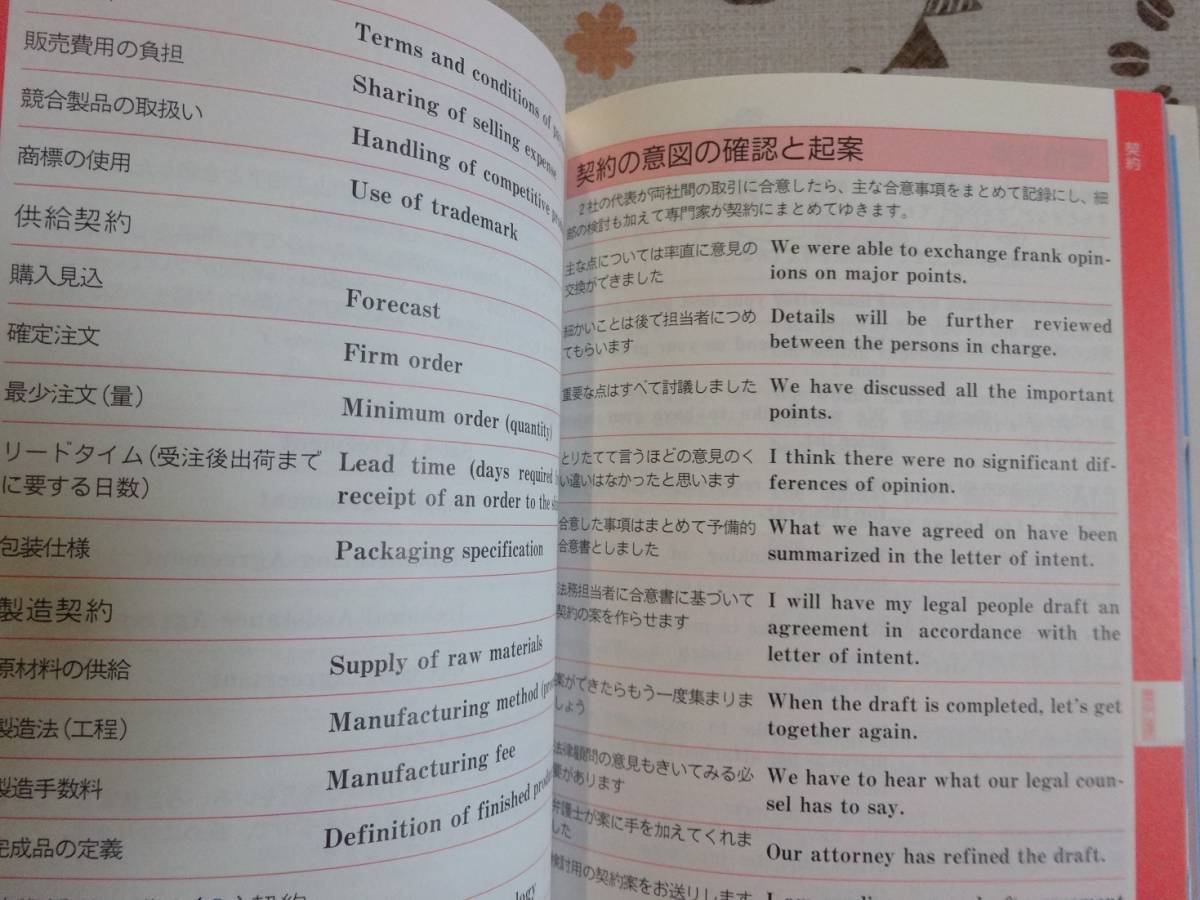 Terms and conditions of
販売費用の負担
Sharing of selling expense
競合製品の取扱い
Handling of competitive
商標の使用
Use of trademark
供給契約
購入見込
Forecast
確定注文
Firm order
最少注文(量)
Minimum order (quantity)
リードタイム(受注後出荷まで
に要する日数)
Lead time (days required
receipt of an order to the
包装仕様
Packaging specification
製造契約
原材料の供給
Supply of raw materials
製造法(工程)
Manufacturing method
製造手数料
Manufacturing fee
完成品の定義
Definition of finished
契約
契約の意図の確認と起案
2社の代表が両社間の取引に合意したら、主な合意事項をまとめて記録にし、細
部の検討も加えて専門家が契約にまとめてゆきます。
主な点については率直に意見の
交換ができました
We were able to exchange frank opin-
ions on major points.
細かいことは後で担当者につめ
てもらいます
Details will be further reviewed
between the persons in charge.
重要な点はすべて討議しました
We have discussed all the important
points.
とりたてて言うほどの意見のく
い違いはなかったと思います
I think there were no significant dif-
ferences of opinion.
合意した事項はまとめて予備的
合意書としました
What we have agreed on have been
summarized in the letter of intent.
法務担当者に合意書に基づいて
契約の案を作らせます
I will have my legal people draft an
agreement in accordance with the
letter of intent.
案ができたらもう一度集まりま
しょう
When the draft is completed, let's get
together again.
法律顧問の意見もきいてみる必
要があります
We have to hear what our legal coun-
sel has to say.
弁護士が案に手を加えてくれま
した
Our attorney has refined the draft.
検討用の契約案をお送りします